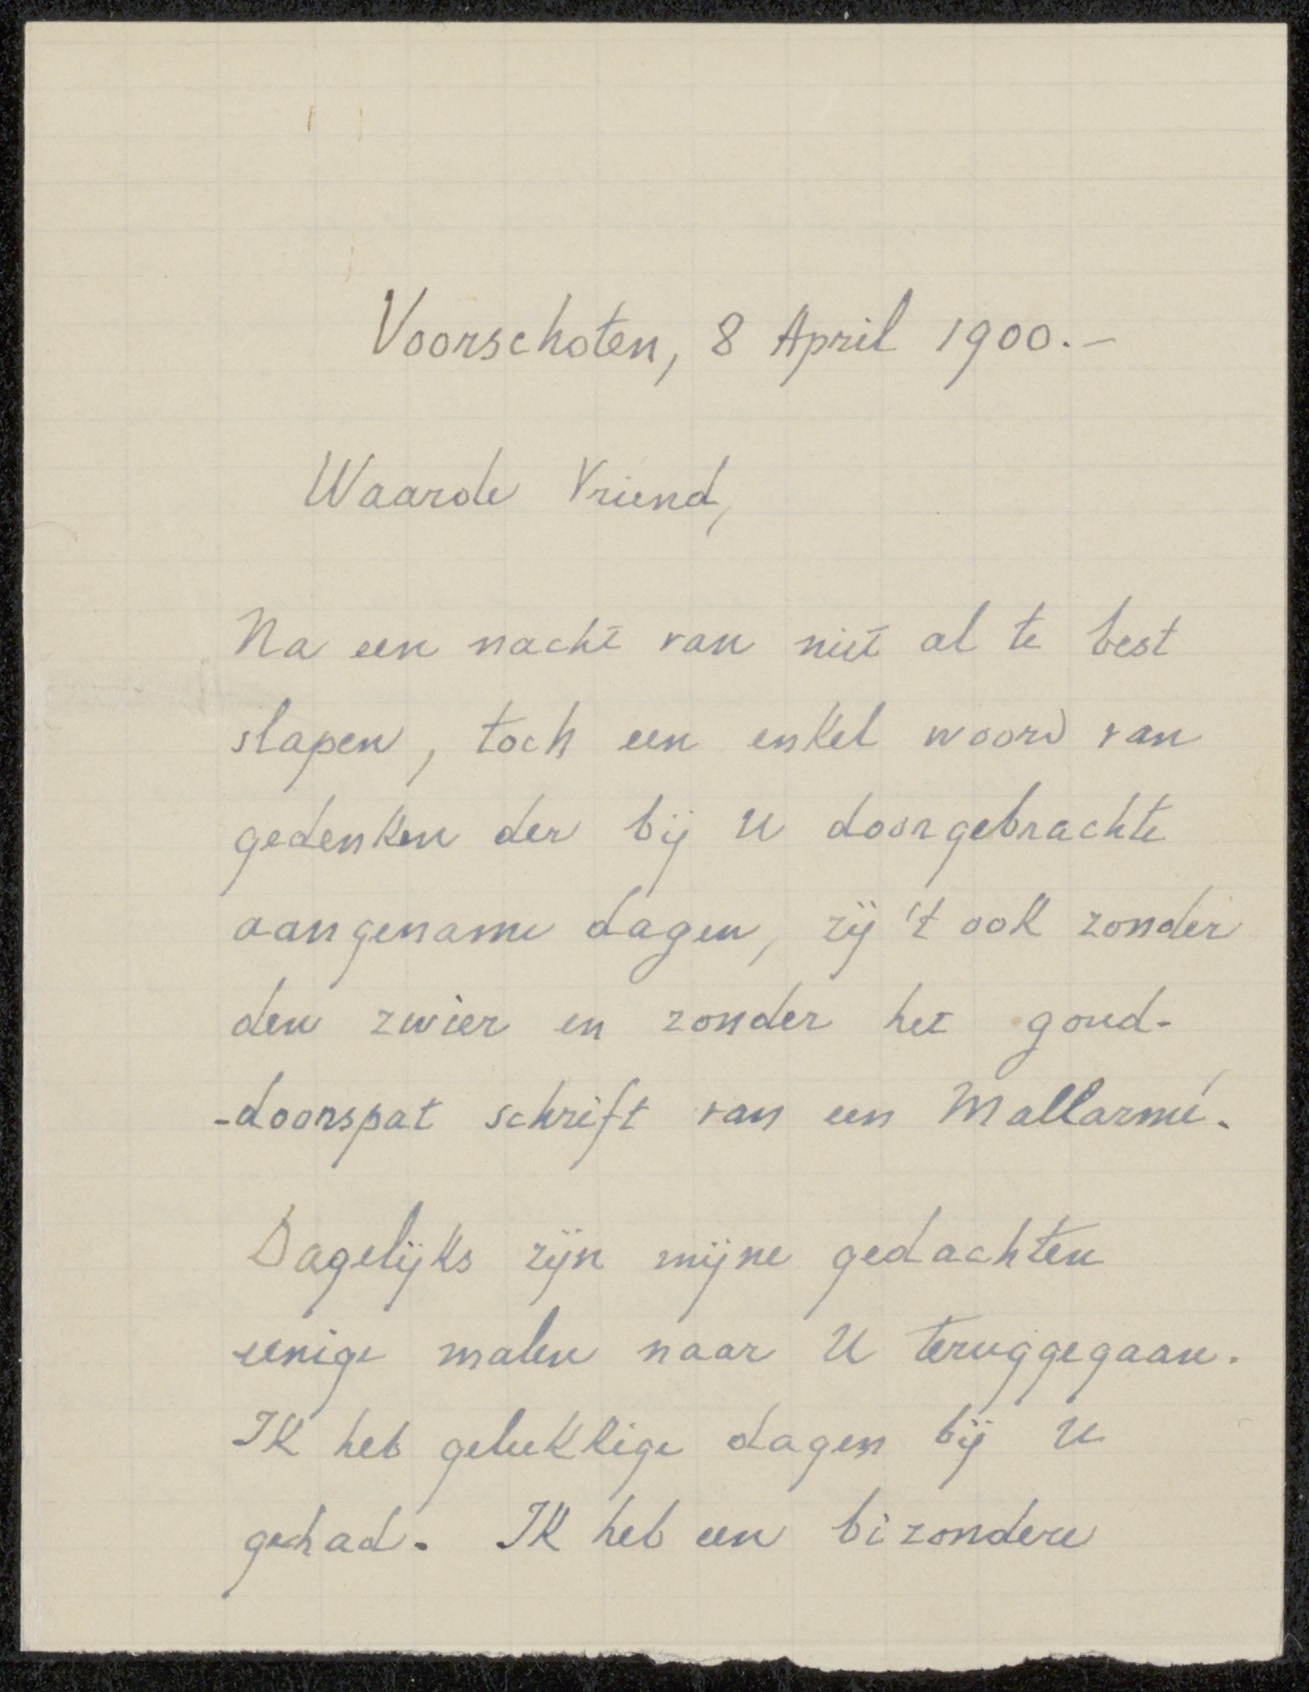 Voorschoten, 8 April 1900.-
Waarde Vriend,
Na een nacht van niet al te best
slapen, toch een enkel woord van
gedenken der bij U doorgebrachte
aangename dagen, zij 't ook zonder
den zwier en zonder het goud-
-doorspat schrift van een Mallarmé.
Dagelijks zijn mijne gedachten
eenige malen naar U teruggegaan.
Ik heb gelukkige dagen bij U
gehad. Ik heb een bizondere